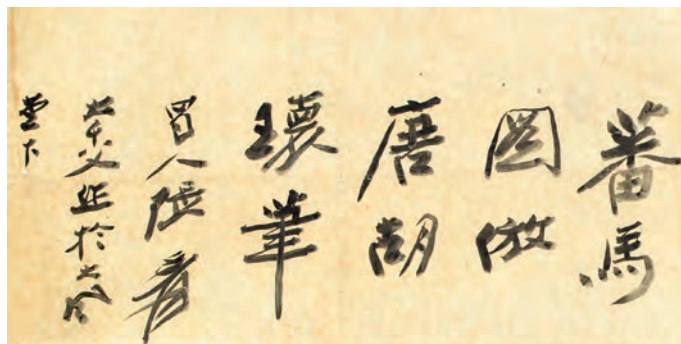 蕃馬
圖倣
唐胡
瓌筆
蜀人張爰
大千父於大風
堂下